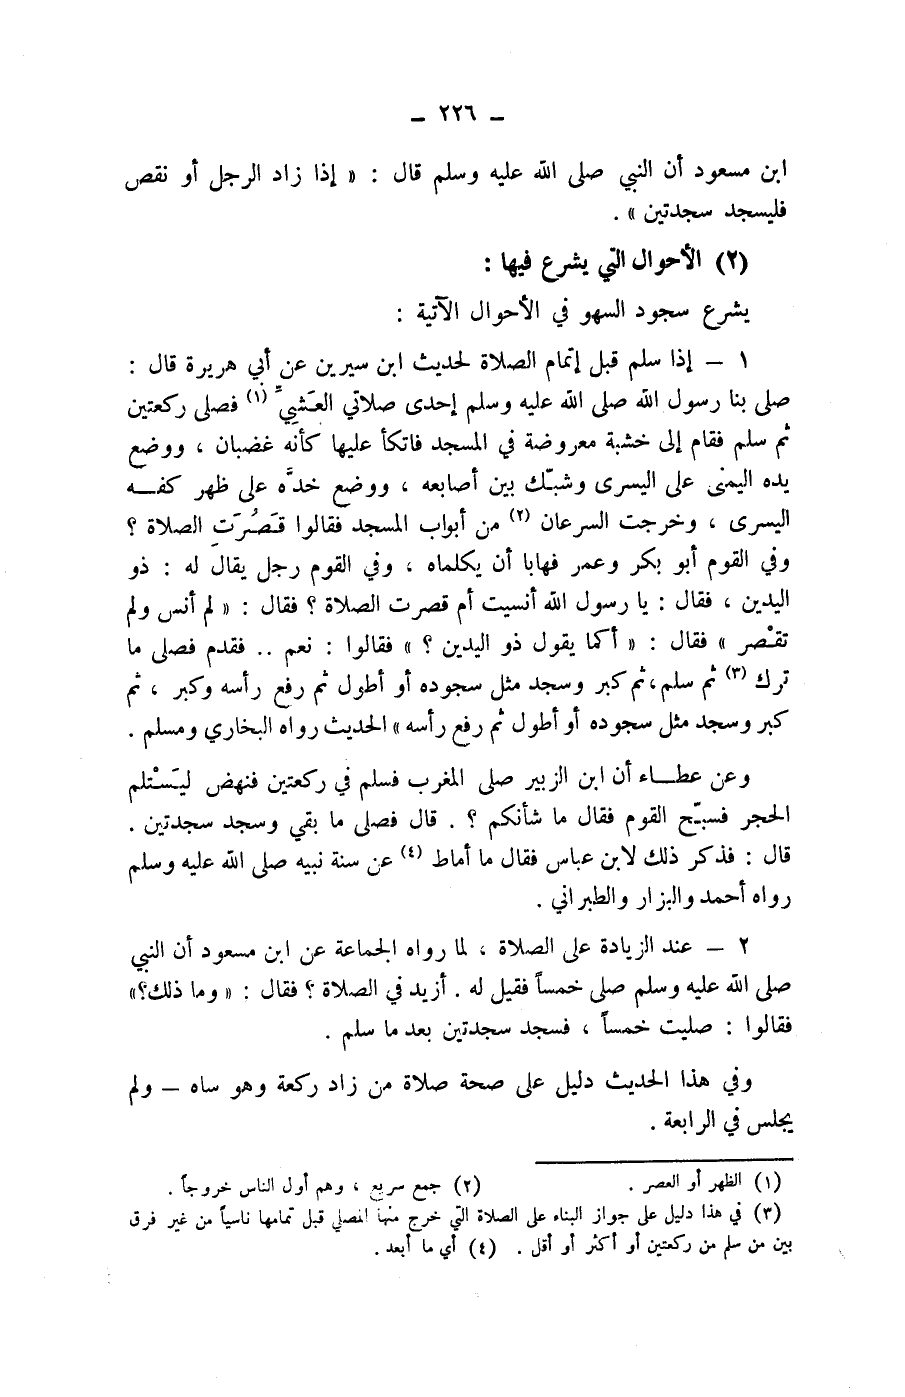 ـ ٢٢٦ ـ
ابن مسعود أن النبي صلى الله عليه وسلم قال : « إذا زاد الرجل أو نقص
فليسجد سجدتين » .
(٢) الأحوال التي يشرع فيها :
يشرع سجود السهو في الأحوال الآتية :
١ – إذا سلم قبل إتمام الصلاة لحديث ابن سيرين عن أبي هريرة قال :
صلى بنا رسول الله صلى الله عليه وسلم إحدى صلاتي العَشِيِّ (١) فصلى ركعتين
ثم سلم فقام إلى خشبة معروضة في المسجد فاتكأ عليها كأنه غضبان ، ووضع
يده اليمنى على اليسرى وشبّك بين أصابعه ، ووضع خدَّه على ظهر كفـــه
اليسرى ، وخرجت السرعان (٢) من أبواب المسجد فقالوا قَصُرَتِ الصلاة ؟
وفي القوم أبو بكر وعمر فهابا أن يكلماه ، وفي القوم رجل يقال له : ذو
اليدين ، فقال : يا رسول الله أنسيت أم قصرت الصلاة ؟ فقال : « لم أنس ولم
تقْصر » فقال : « أكما يقول ذو اليدين ؟ » فقالوا : نعم .. فقدم فصلى ما
ترك (٣) ثم سلم،ثم كبر وسجد مثل سجوده أو أطول ثم رفع رأسه وكبر ، ثم
كبر وسجد مثل سجوده أو أطول ثم رفع رأسه » الحديث رواه البخاري ومسلم .
وعن عطـــاء أن ابن الزبير صلى المغرب فسلم في ركعتين فنهض ليَسْتلم
الحجر فسبّح القوم فقال ما شأنكم ؟ . قال فصلى ما بقي وسجد سجدتين .
قال : فذكر ذلك لابن عباس فقال ما أماط (٤) عن سنة نبيه صلى الله عليه وسلم
رواه أحمد والبزار والطبراني .
٢ – عند الزيادة على الصلاة ، لما رواه الجماعة عن ابن مسعود أن النبي
صلى الله عليه وسلم صلى خمساً فقيل له . أزيد في الصلاة ؟ فقال : « وما ذلك؟»
فقالوا : صليت خمساً ، فسجد سجدتين بعد ما سلم .
وفي هذا الحديث دليل على صحة صلاة من زاد ركعة وهو ساه – ولم
يجلس في الرابعة .
(١) الظهر أو العصر . (٢) جمع سريع ، وهم أول الناس خروجاً .
(٣) في هذا دليل على جواز البناء على الصلاة التي خرج منها المصلي قبل تمامها ناسياً من غير فرق
بين من سلم من ركعتين أو أكثر أو أقل . (٤) أي ما أبعد .